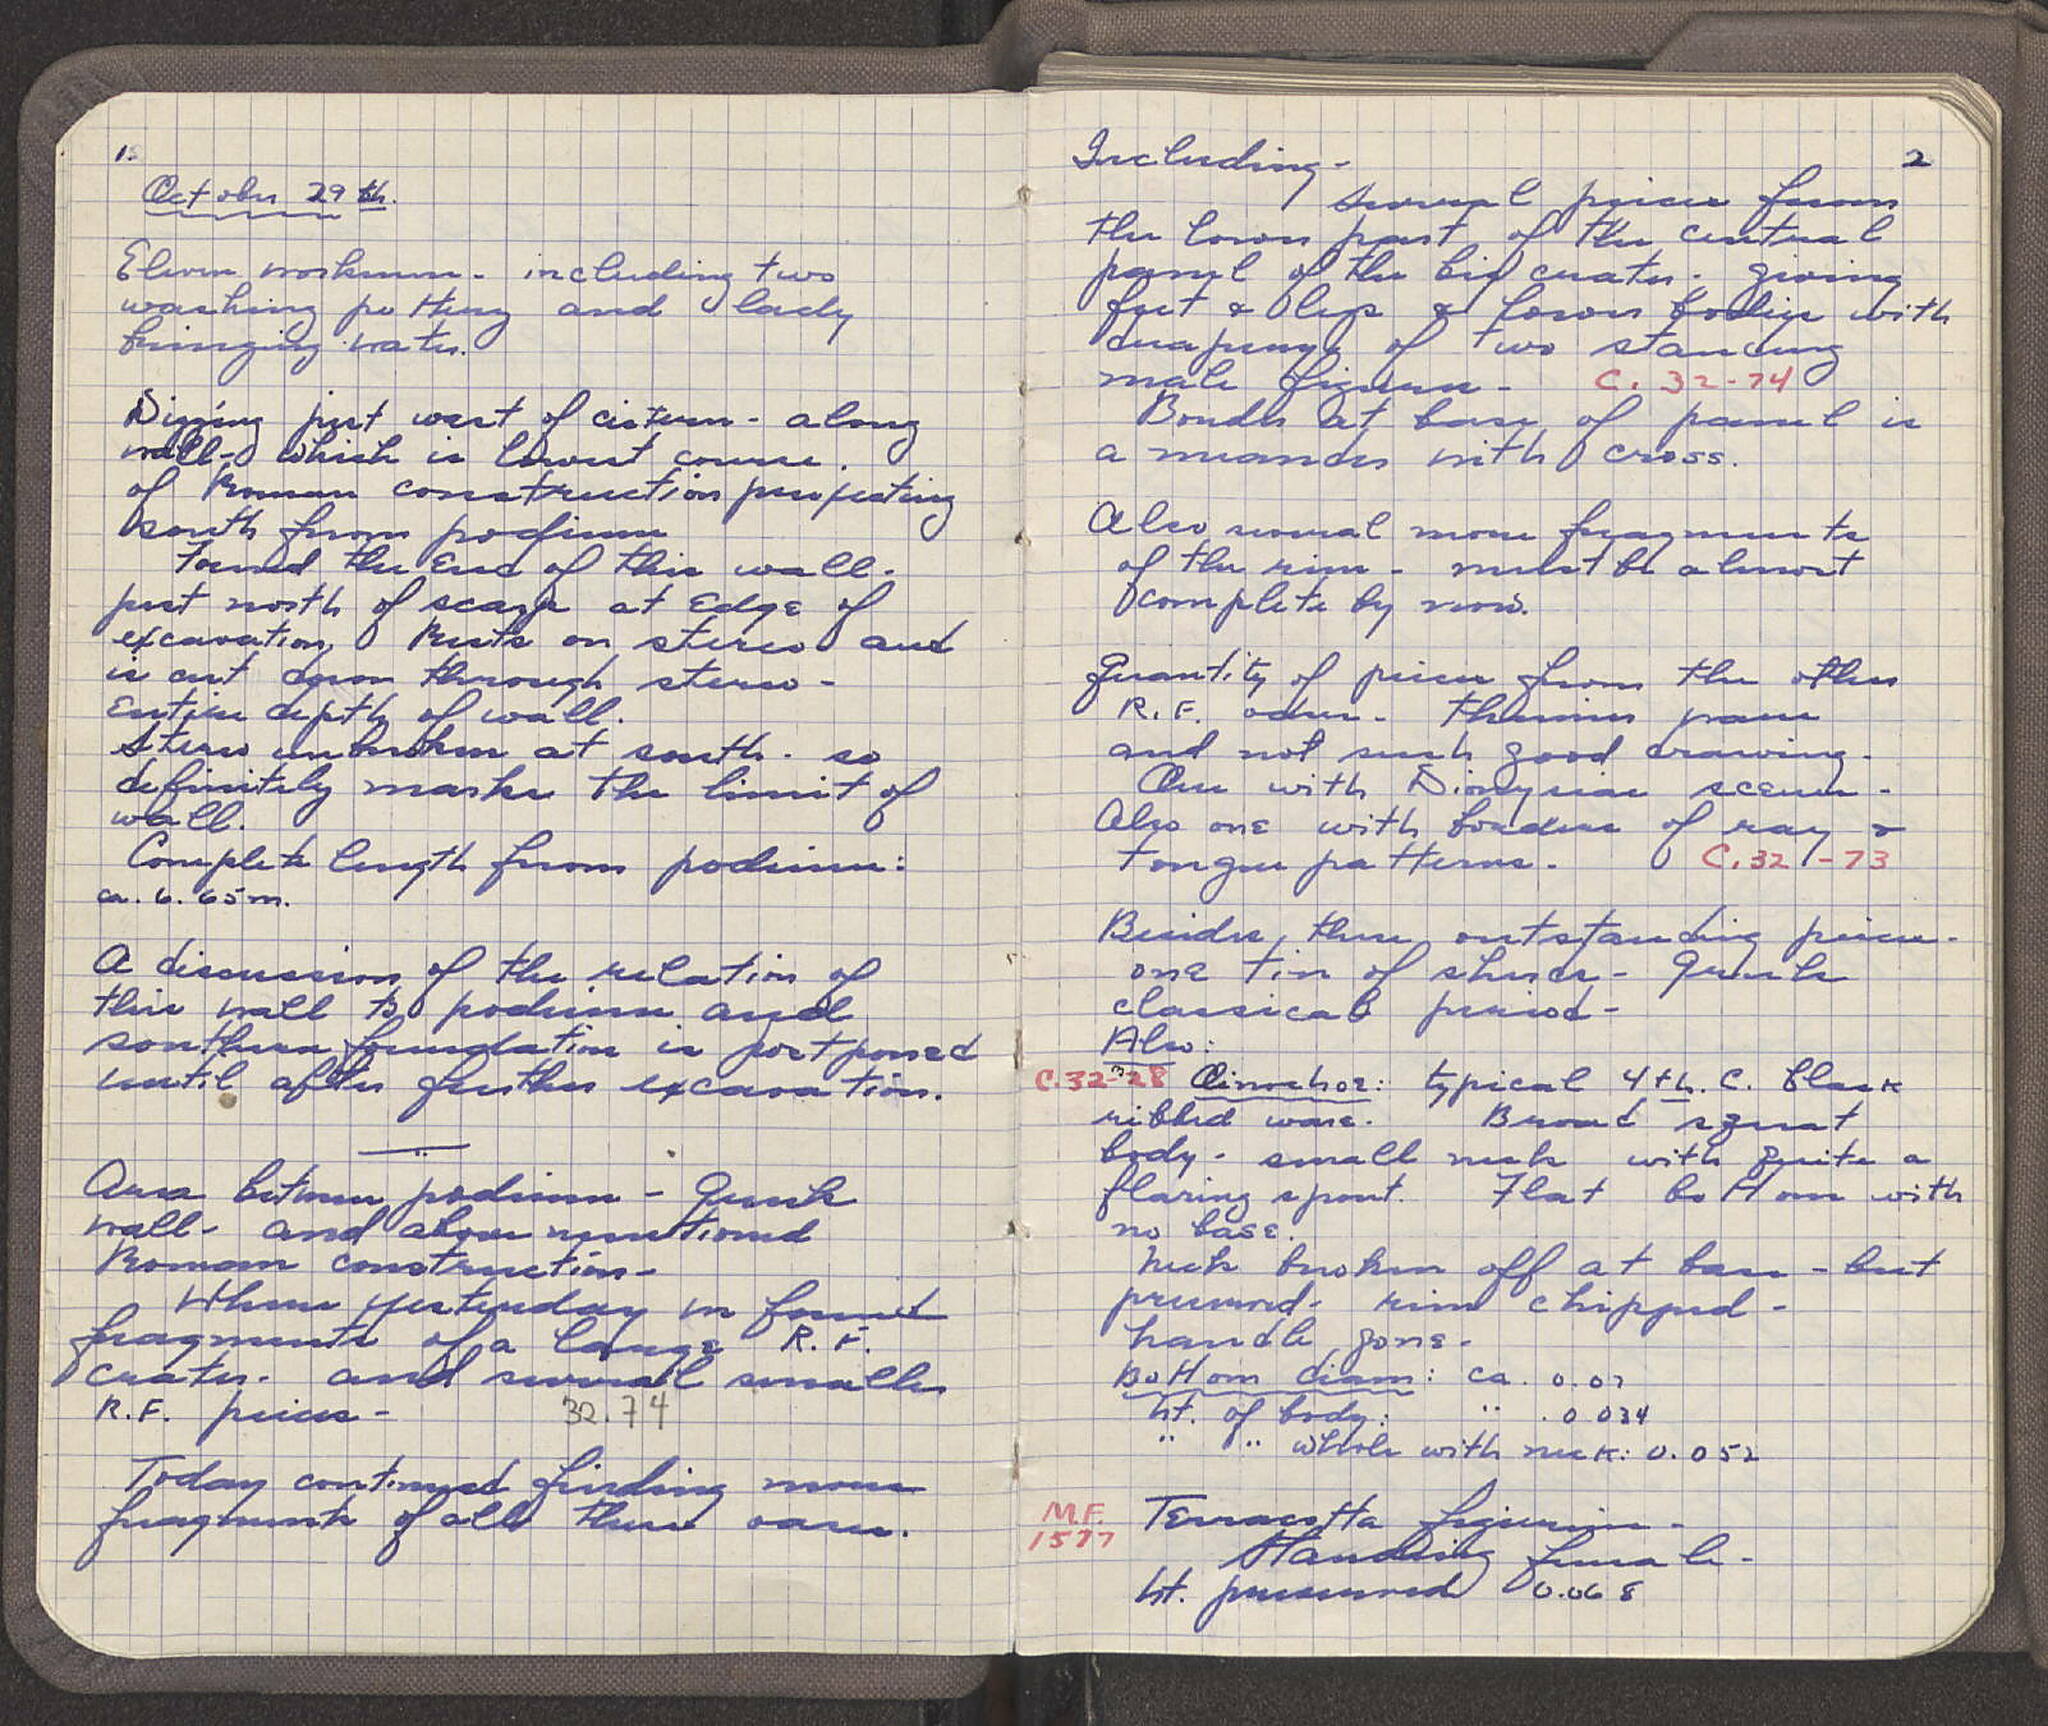 1.
October 29th.
Eleven workmen - including two
washing pottery and lady
bringing water.
Digging just west of cistern - along
wall - which is lowest course
of Roman construction projecting
south from podium
Found the End of this wall -
just north of scarp at Edge of
excavation. Rests on stereo and
is cut down through stereo -
Entire depth of wall.
Stereo unbroken at south - so
definitely marks the limit of
wall.
Complete length from podium:
ca. 6.65 m.
A discussion of the relation of
this wall to podium and
southern foundation is postponed
until after further excavation.
Area between podium - Greek
wall - and above mentioned
Roman construction -
Where yesterday we found
fragments of a large R.F.
crater - and several smaller
R.F. pieces - 32.74
Today continued finding more
fragments of all these vases.
2
Including -
several pieces from
the lower part of the central
panel of the big crater - giving
feet & legs & lower bodies with
drapery of two standing
male figures - C. 32-74
Border at base of panel is
a meander with cross.
Also several more fragments
of the rim - must be almost
complete by now.
Quantity of pieces from the other
R.F. vases - thinner ware
and not such good drawing.
One with Dionysiac scenes -
Also one with borders of ray &
tongue patterns. C. 32-73
Besides these outstanding pieces -
one tin of sherds - Greek
classical period -
Also:
C. 32-328 Oinochoe: typical 4th. C. black
ribbed ware. Broad squat
body - small neck with quite a
flaring spout. Flat bottom with
no base.
Neck broken off at base - but
preserved - rim chipped -
handle gone.
Bottom diam: ca. 0.07
ht. of body: " .0034
" " whole with neck: 0.052
M.F.
1577
Terracotta figurine -
Standing female -
ht. preserved 0.068